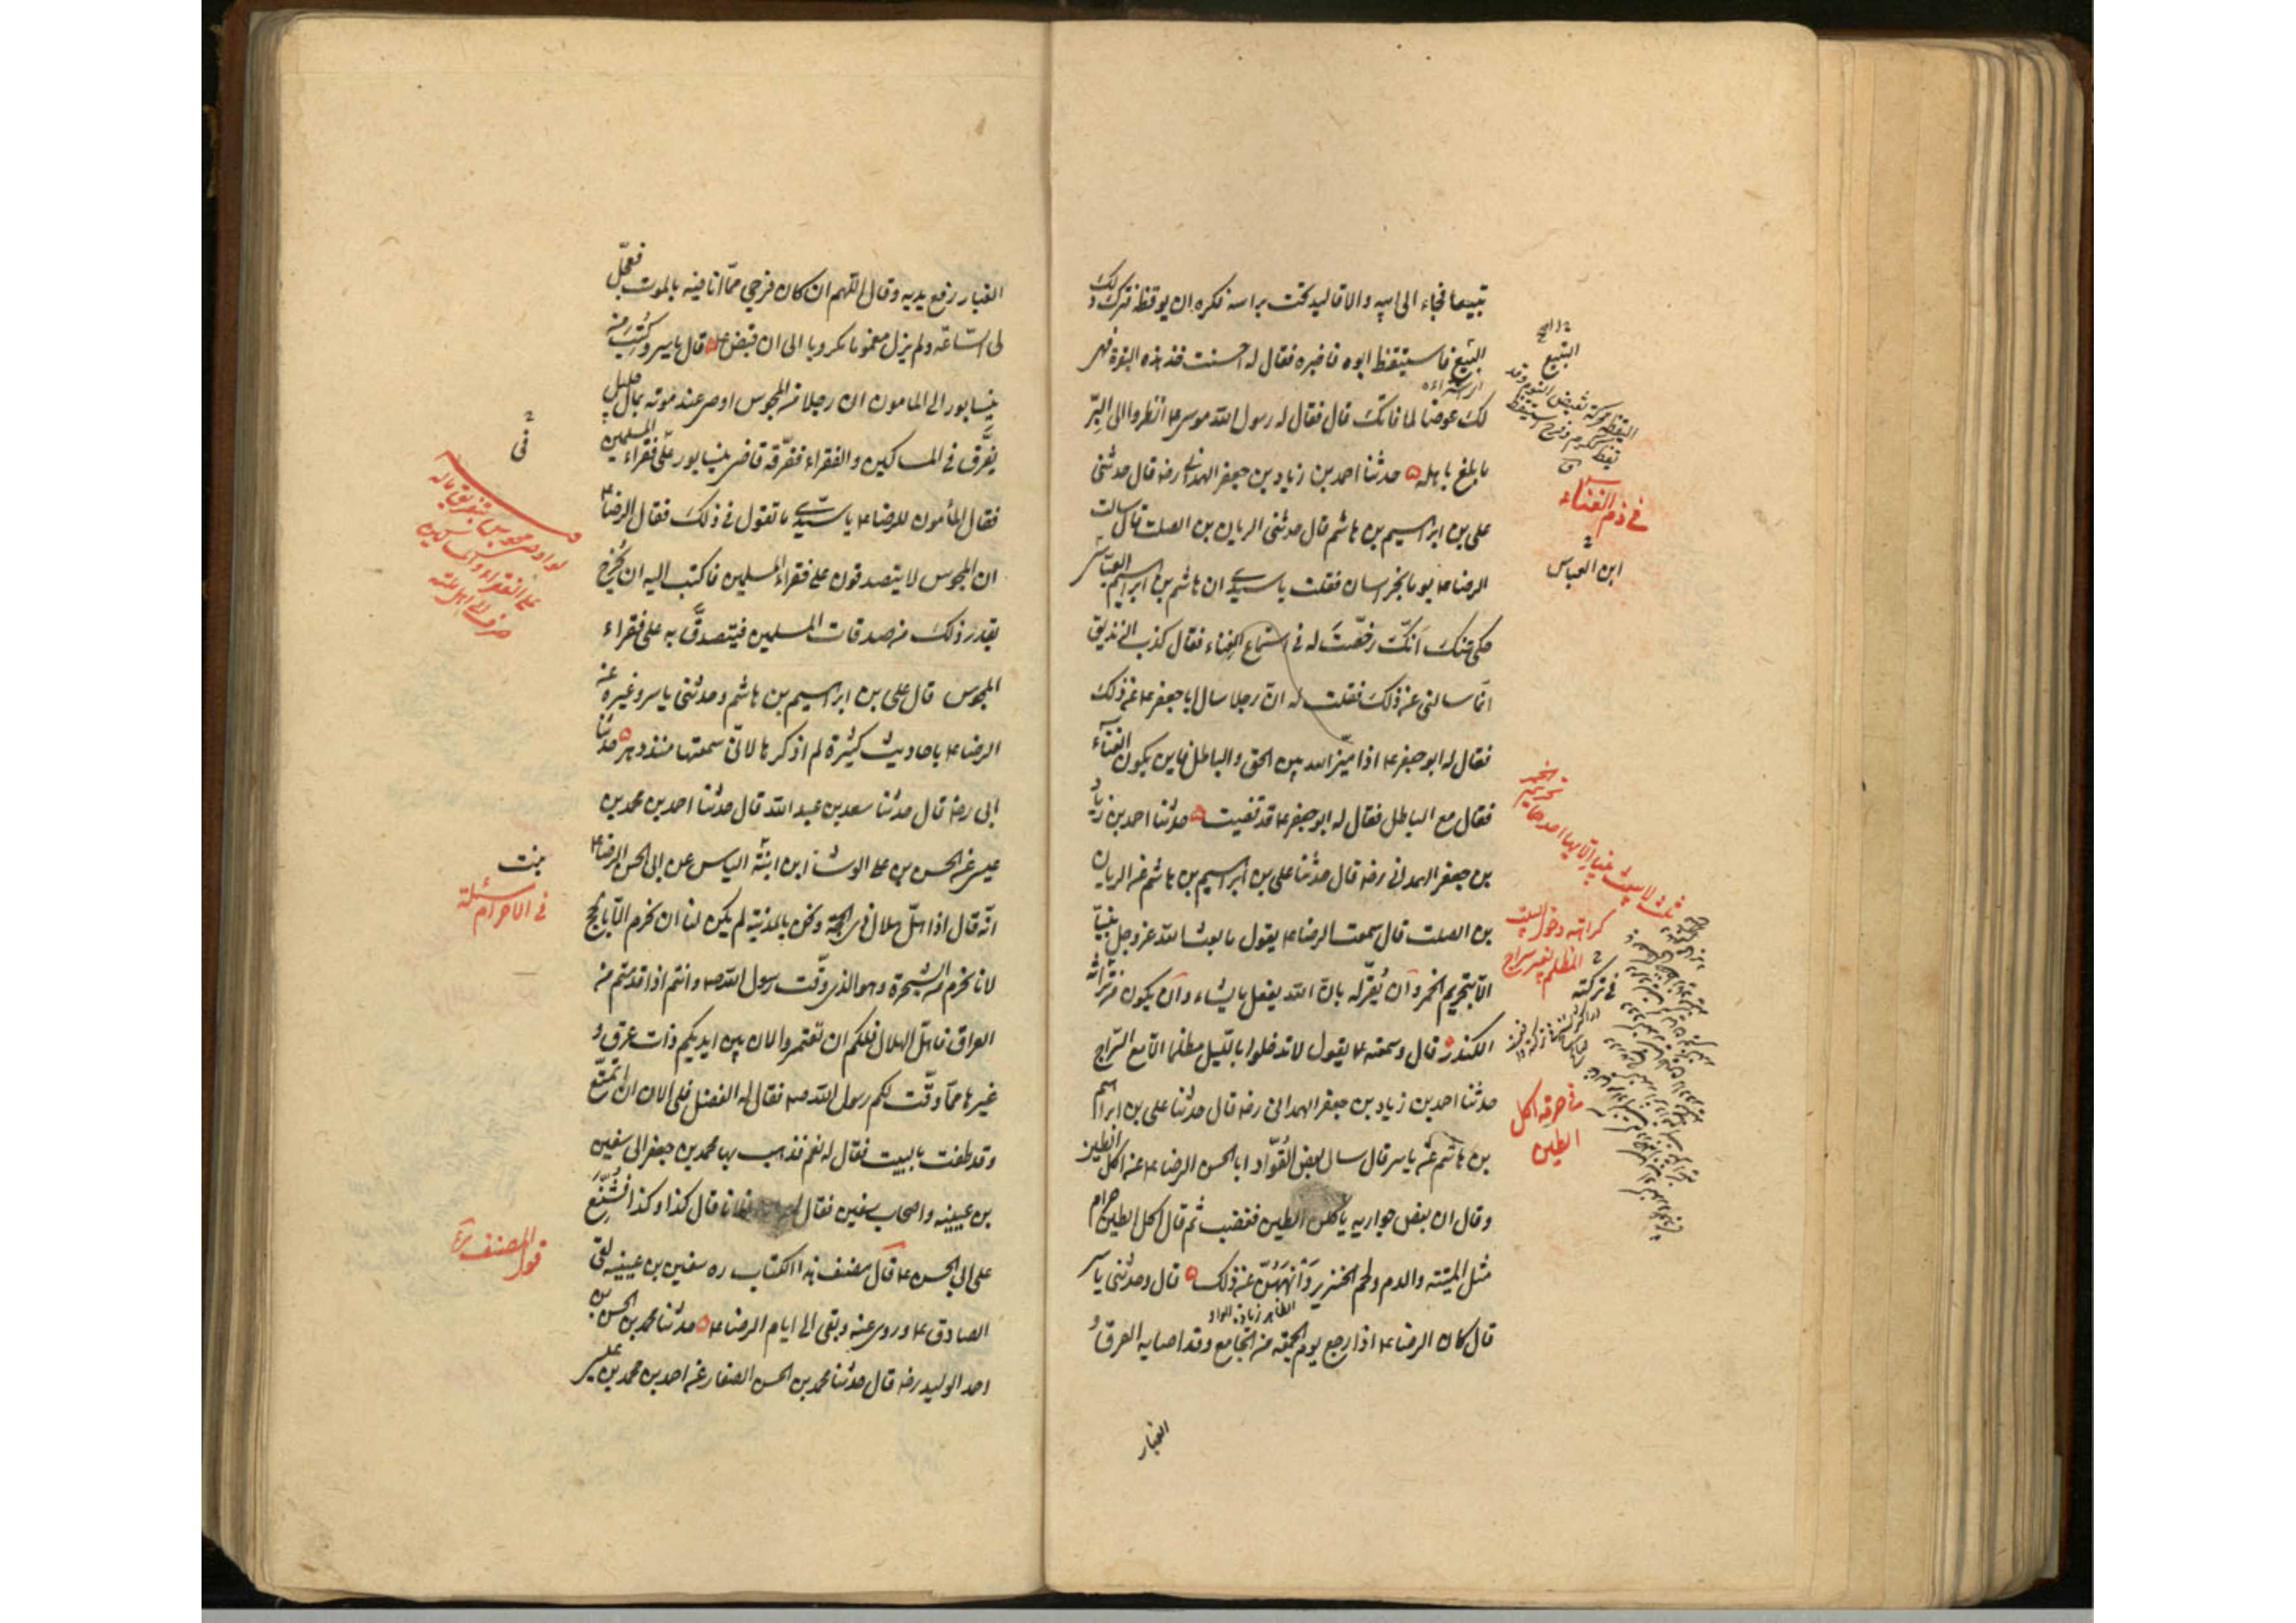 تبيعا فجاء الى ابيه والاقاليد تحت راسه فكره ان يوقظه فترك ذلك
البيع فاستيقظ ابوه فاخبره فقال له احسنت خذ هذه البقرة فهي
لك عوضا لما فاتك قال فقال له رسول الله موسى ع انظروا الى البرّ
ما بلغ باهله حدثنا احمد بن زياد بن جعفر الهمداني رضه قال حدثنى
على بن ابراهيم بن هاشم قال حدثنى الريان بن الصلت قال سالت
الرضا ع يوما بخراسان فقلت يا سيدى ان هاشم بن ابراهيم العباسى
حكى عنك انّك رخّصت له فى استماع الغناء فقال كذب الزنديق
انما سالنى عن ذلك فقلت له انّ رجلا سال ابا جعفر ع عن ذلك
فقال له ابو جعفر ع اذا ميّز الله بين الحق والباطل فاين يكون الغناء
فقال مع الباطل فقال له ابو جعفر ع قد قضيت حدثنا احمد بن زياد
بن جعفر الهمدانى رضه قال حدثنا على بن ابراهيم بن هاشم عن الريان
بن الصلت قال سمعت الرضا ع يقول ما بعث الله عز وجل نبيّا
الّا بتحريم الخمر وان يُقرّ له بانّ الله يفعل ما يشاء وان يكون فى تراثه
الكندر قال وسمعته ع يقول لا تدخلوا بالليل مظلما الّا مع السّراج
حدثنا احمد بن زياد بن جعفر الهمدانى رضه قال حدثنا على بن ابراهيم
بن هاشم عن ياسر قال سال بعض القوّاد ابا الحسن الرضا ع عن اكل الطين
وقال ان بعض جواريه ياكلن الطين فغضب ثم قال اكل الطين حرام
مثل الميتة والدم ولحم الخنزير وَانْهَهُنّ عن ذلك قال وحدثنى ياسر
الظاهر زيادة الواو
قال كان الرضا ع اذا رجع يوم الجمعة من الجامع وقد اصابه العرق و
الغبار
التبيع
فى ذم الغناء
ابن العباس
كراهة دخول البيت
المظلم بغير سراج
فى تركته
فى حرمة اكل
الطين
الغبار رفع يديه وقال اللهم ان كان فرجى ممّا انا فيه بالموت فعجّل
لى السّاعة ولم يزل مغموما مكروبا الى ان قبض ع قال ياسر وكتب من
نيسابور الى المامون ان رجلا من المجوس اوصى عند موته بمال جليل
يفرَّق فى المساكين والفقراء ففرّقه قاضى نيسابور على فقراء المسلمين
فقال المأمون للرضا ع يا سيّدى ما تقول فى ذلك فقال الرضا ع
ان المجوس لا يتصدقون على فقراء المسلمين فاكتب اليه ان يخرج
بقدر ذلك من صدقات المسلمين فيتصدّق به على فقراء
المجوس قال على بن ابراهيم بن هاشم وحدثنى ياسر وغيره عن
الرضا ع باحاديث كثيرة لم اذكرها لانّى سمعتها منذ دهر حدثنا
ابى رضه قال حدثنا سعد بن عبد الله قال حدثنا احمد بن محمد بن
عيسى عن الحسن بن على الوشاء ابن ابنة الياس عن ابى الحسن الرضا ع
انّه قال اذا اهلّ هلال ذى الحجة ونحن بالمدينة لم يكن لنا ان نحرم الّا بالحج
لانا نحرم من الشجرة وهو الذى وقّت رسول الله ص وانتم اذا قدمتم من
العراق فاهلّ الهلال فلكم ان تعتمروا لان بين ايديكم ذات عرق و
غيرها ممّا وقّت لكم رسول الله ص فقال له الفضل فلى الان ان اتمتّع
وقد طفت بالبيت فقال له نعم فذهب بها محمد بن جعفر الى سفين
بن عيينه واصحاب سفين فقال لهم ان فلانا قال كذا وكذا فشنّع
على ابى الحسن ع قال مصنف هذا الكتاب ره سفين بن عيينه لقى
الصادق ع وروى عنه وبقى الى ايام الرضا ع حدثنا محمد بن الحسن بن
احمد الوليد رضه قال حدثنا محمد بن الحسن الصفار عن احمد بن محمد بن عيسى
فى
لو اوصى مجوسى بتفريق ماله
على الفقراء والمساكين
صرف الى اهل ملته
بنت
مسئلة
فى الاحرام
قول المصنف ره